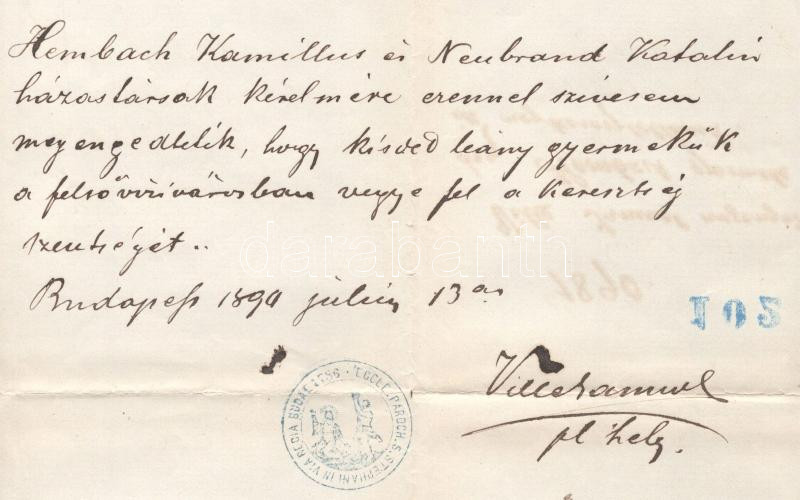 Hembach Kamillus és Neubrand Katalin
házastársak kérelmére ezennel szívesen
megengedtetik, hogy kisded leány gyermekük
a felsővizivárosban vegye fel a keresztség
szentségét..
Budapest 1890 július 13án
105
ECCLE. PAROCH. S. STEPHANI IN VIA REGIA BUDAPESS
pl. hely.
darabanth
1890